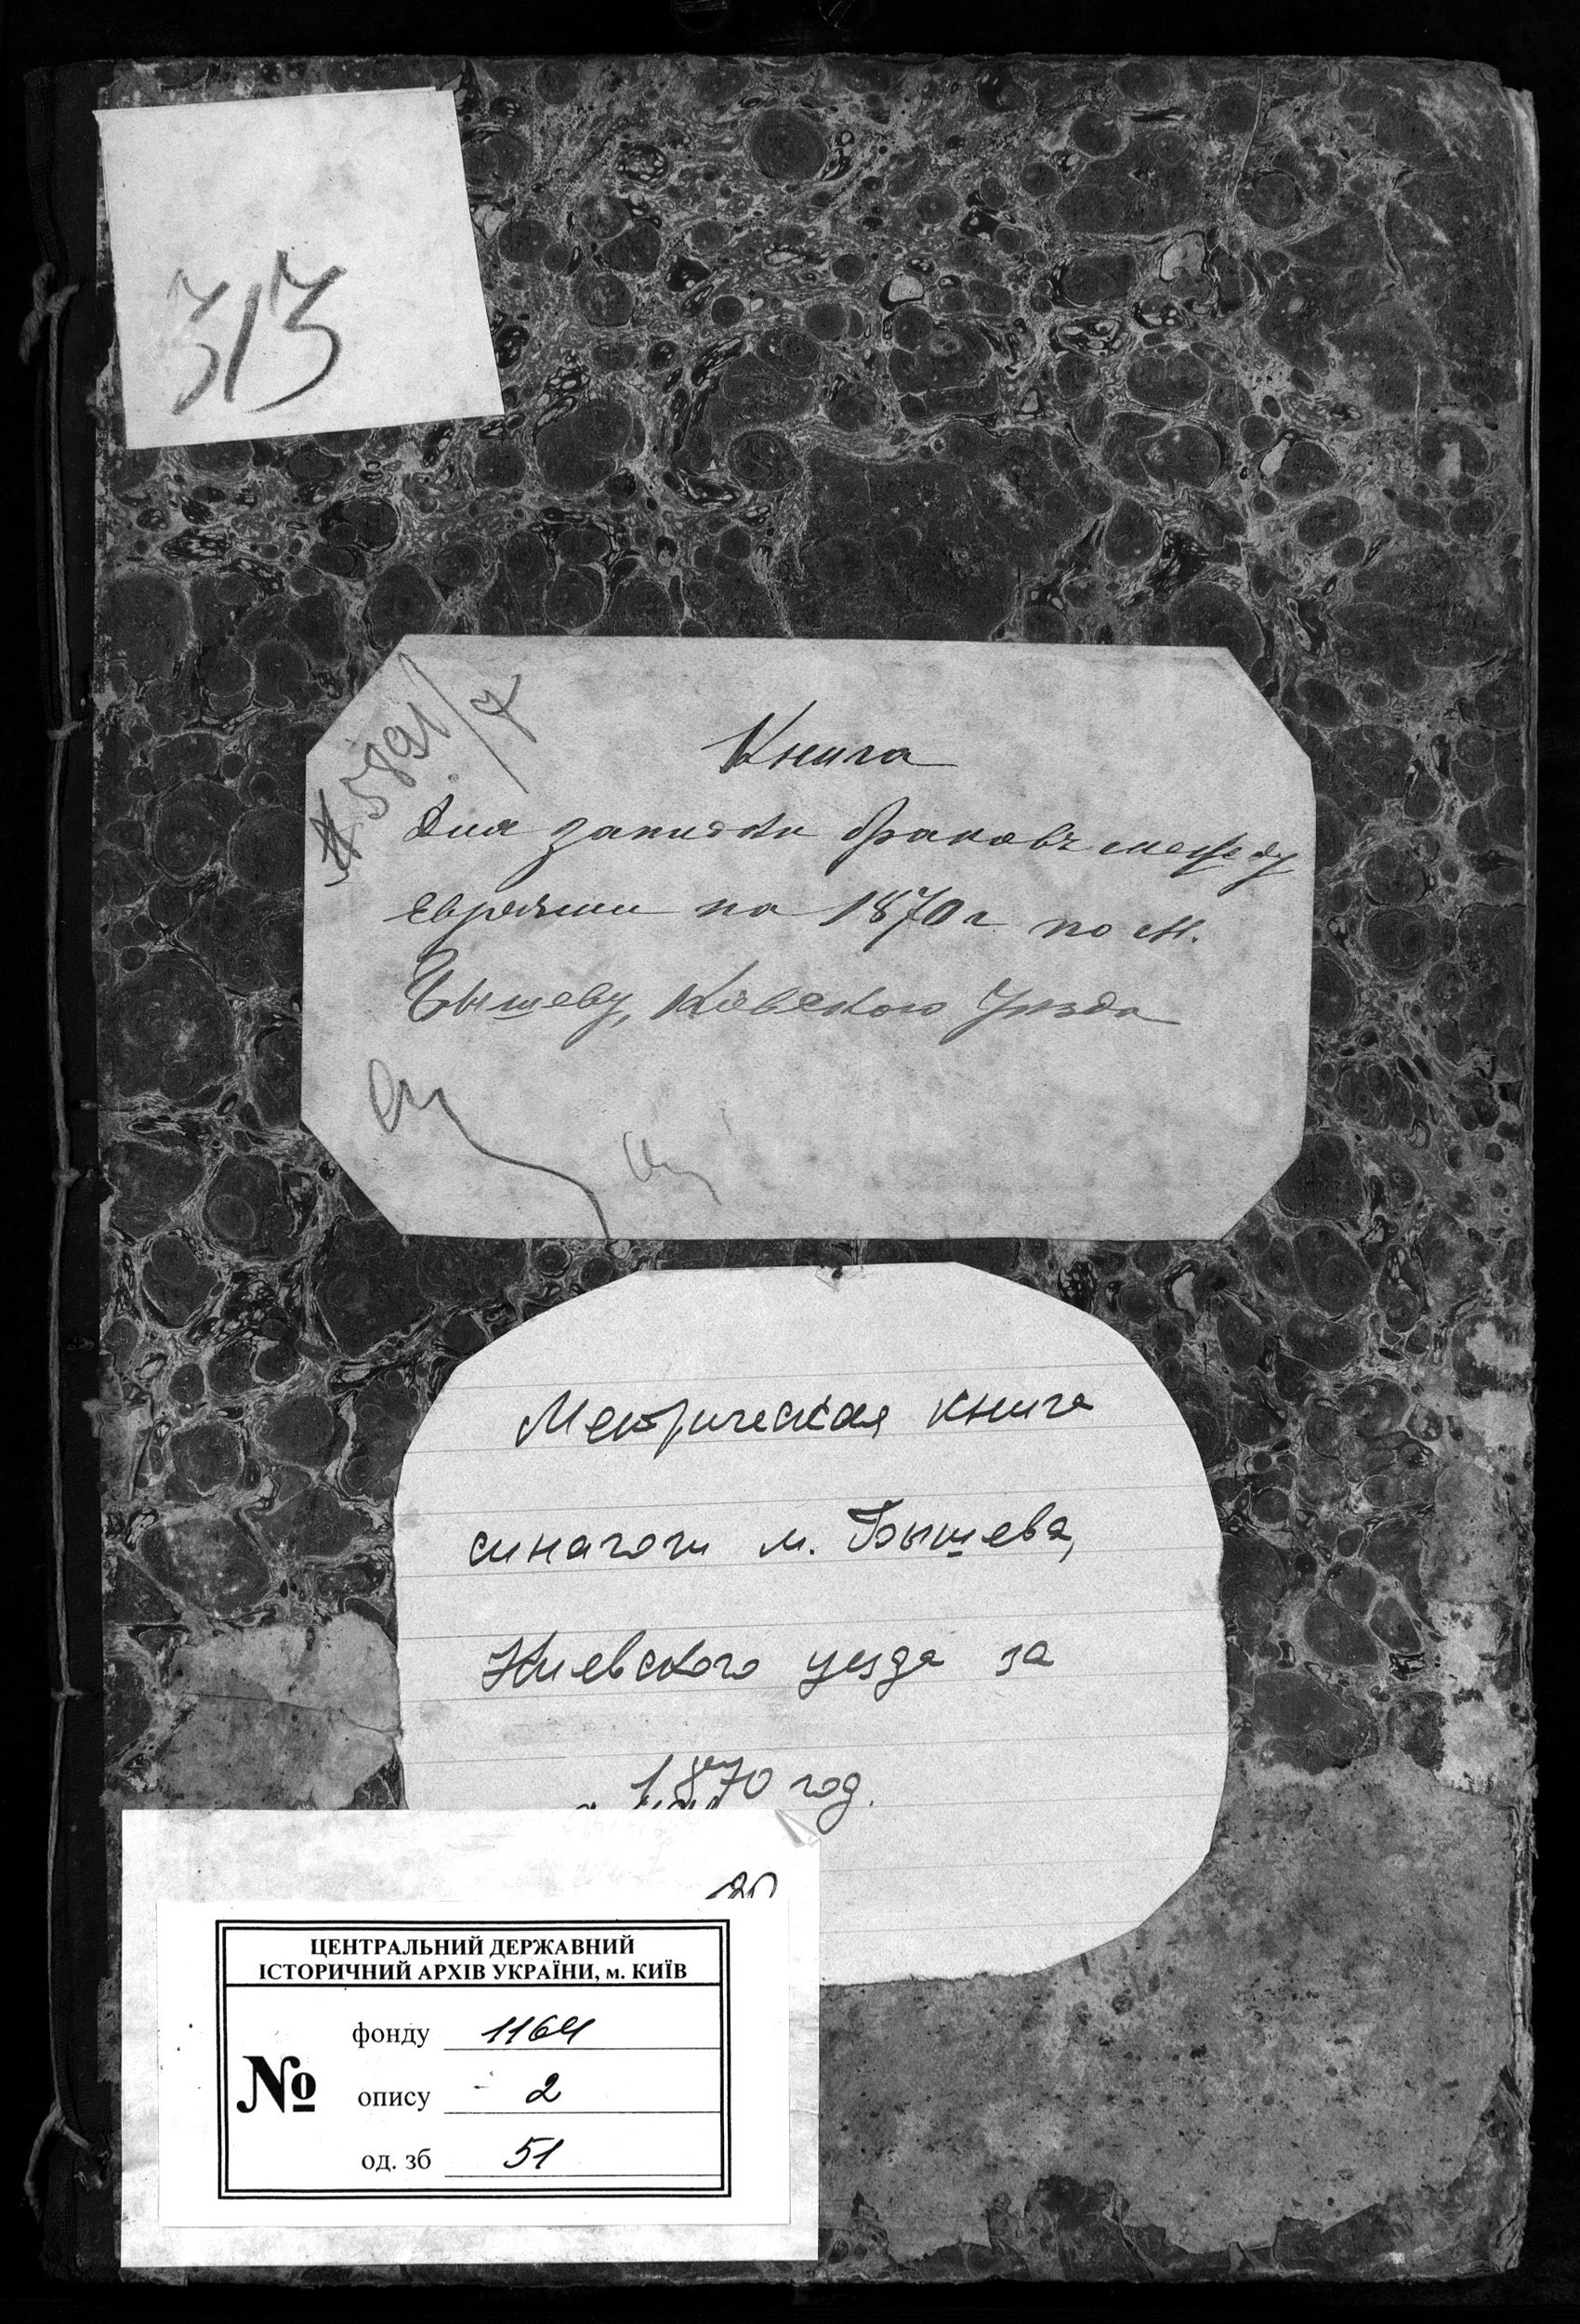 313
№ 5891/7
Книга
Для записки браковъ между
Евреями на 1870 г. по М.
Бышеву, Кіевского Уѣзда
Метрическая книга
синагоги м. Бышева,
Киевского уезда за
1870 год.
ЦЕНТРАЛЬНИЙ ДЕРЖАВНИЙ
ІСТОРИЧНИЙ АРХІВ УКРАЇНИ, м. КИЇВ
№
фонду 1164
опису 2
од. зб 51